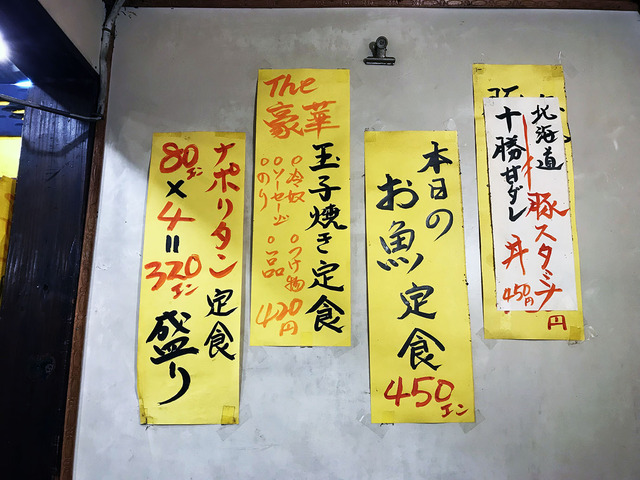 ナポリタン定食
80エン×4=320エン
盛り
The
豪華
玉子焼き定食
○冷奴 ○つけ物
○ソーセージ ○一品
○のり
420円
本日の
お魚定食
450エン
北海道
豚スタミナ
十勝甘ダレ
丼
450円
円